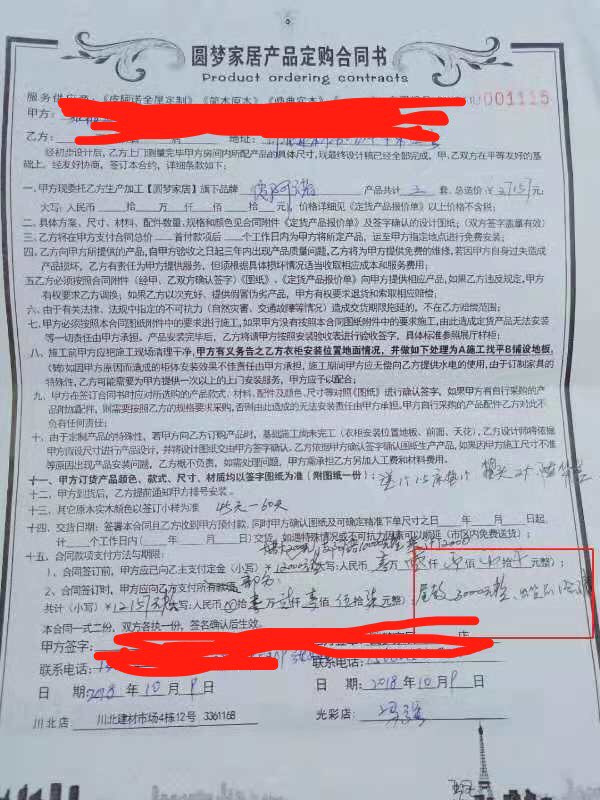 圆梦家居产品定购合同书
Product ordering contracts
服务供应商:《皮阿诺全屋定制》
001115
甲方:
乙方: 地址:
经初步设计后,乙方上门测量完毕甲方房间内所配产品的具体尺寸,现最终设计稿已经全部完成,甲、乙双方在平等友好的基
础上,经友好协商,签订本合约,详细条款如下:
一、甲方现委托乙方生产加工【圆梦家居】旗下品牌 皮阿诺 产品共计 套、总造价¥ 27157元
大写:人民币 拾 万 仟 佰 拾 元),价格详细见《定货产品报价单》以上价格不含税;
二、具体方案、尺寸、材料、配件数量、规格和颜色见合同附件《定货产品报价单》及签字确认的设计图纸;(双方签字盖章有效)
三、乙方将在甲方支付合同总价 首付款项后 个工作日内为甲方将所定产品,运至甲方指定地点进行免费安装;
四、乙方向甲方所提供的产品,自甲方验收之日起三年内出现产品质量问题,乙方将为甲方提供免费的维修,若因甲方自身过失造成
产品损坏,乙方有责任为甲方提供服务,但须根据具体损坏情况适当收取相应成本和服务费用;
五乙方必须按照合同附件(经甲、乙双方确认签字)《图纸》、《定货产品报价单》向甲方提供相应产品,如果乙方违反规定,甲方
有权要求乙方调换;如果乙方以次充好、提供假冒伪劣产品,甲方有权要求退货和索取相应赔偿;
六、由于有关法律、法规中指定的不可抗力(自然灾害、交通故障等情况)造成交货期限拖延的,不在乙方赔偿范围;
七、甲方必须按照本合同图纸附件中的要求进行施工,如果甲方没有按照本合同图纸附件中的要求施工,由此造成定货产品无法安装
等一切责任由甲方承担。产品安装完毕后,乙方将请甲方按照安装验收表进行验收签字,具体标准参照展厅样柜;
八、施工前甲方应把施工现场清理干净,甲方有义务告之乙方衣柜安装位置地面情况,并做如下处理为A施工找平B铺设地板,
(转)如因甲方原因而造成的柜体安装效果不佳责任由甲方承担,施工期间甲方应无偿向乙方提供水电的使用,由于订制家具的
特殊性,乙方可能需要为甲方提供一次以上的上门安装服务,甲方应予以配合;
九、甲方在签订合同书时应对所选购的产品款式、材料、配件及颜色、尺寸等对照《图纸》进行确认签字,如果甲方有自行采购的产
品附加配料,则需要按照乙方的规格要求采购,否则由此造成的无法安装责任由甲方承担,甲方自行采购的产品配件乙方对此不
负有任何责任;
十、由于定制产品的特殊性,若甲方向乙方订购产品时,基础施工尚未完工(衣柜安装位置地板、前面、天花),乙方设计师将依据
甲方假设尺寸进行产品设计,并将设计图纸交由甲方签字确认,乙方依据甲方确认签字确认图纸生产产品,如果因甲方施工尺寸不准
等原因出现产品安装问题,乙方概不负责,如需处理问题,甲方需承担乙方另加人工费和材料费用。
十一、甲方订货产品颜色、款式、尺寸、材质均以签字图纸为准(附图纸一份):
十二、甲方到货后,乙方提前通知甲方排号安装。
十三、其它原木实木颜色以签订小样为准 45天-60天
十四、交货日期:签署本合同且乙方收到甲方预付款,同时甲方确认图纸及可确定精准下单尺寸之日 年 月 日起,
计 个工作日( 年 月 日)交货,如遇特殊情况或不可抗力因素可以顺延(市区内免费送货);
十五、合同款项支付方法与期限:
1、合同签订前,甲方应已向乙方支付定金(小写)¥12000元 大写:人民币 万 仟 佰 拾 元整);
2、合同签订时,甲方应向乙方支付所有款项
共计(小写)¥12157元 大写:人民币 拾 壹万 贰仟 壹佰 伍拾 柒元整) 尾款3000元整
本合同一式二份,双方各执一份,签名确认后生效。
甲方签字:
联系电话: 联系电话:
日 期:2018 年 10 月 9 日 日 期:2018 年 10 月 9 日
川北店: 川北建材市场4栋12号 3361168 光彩店: